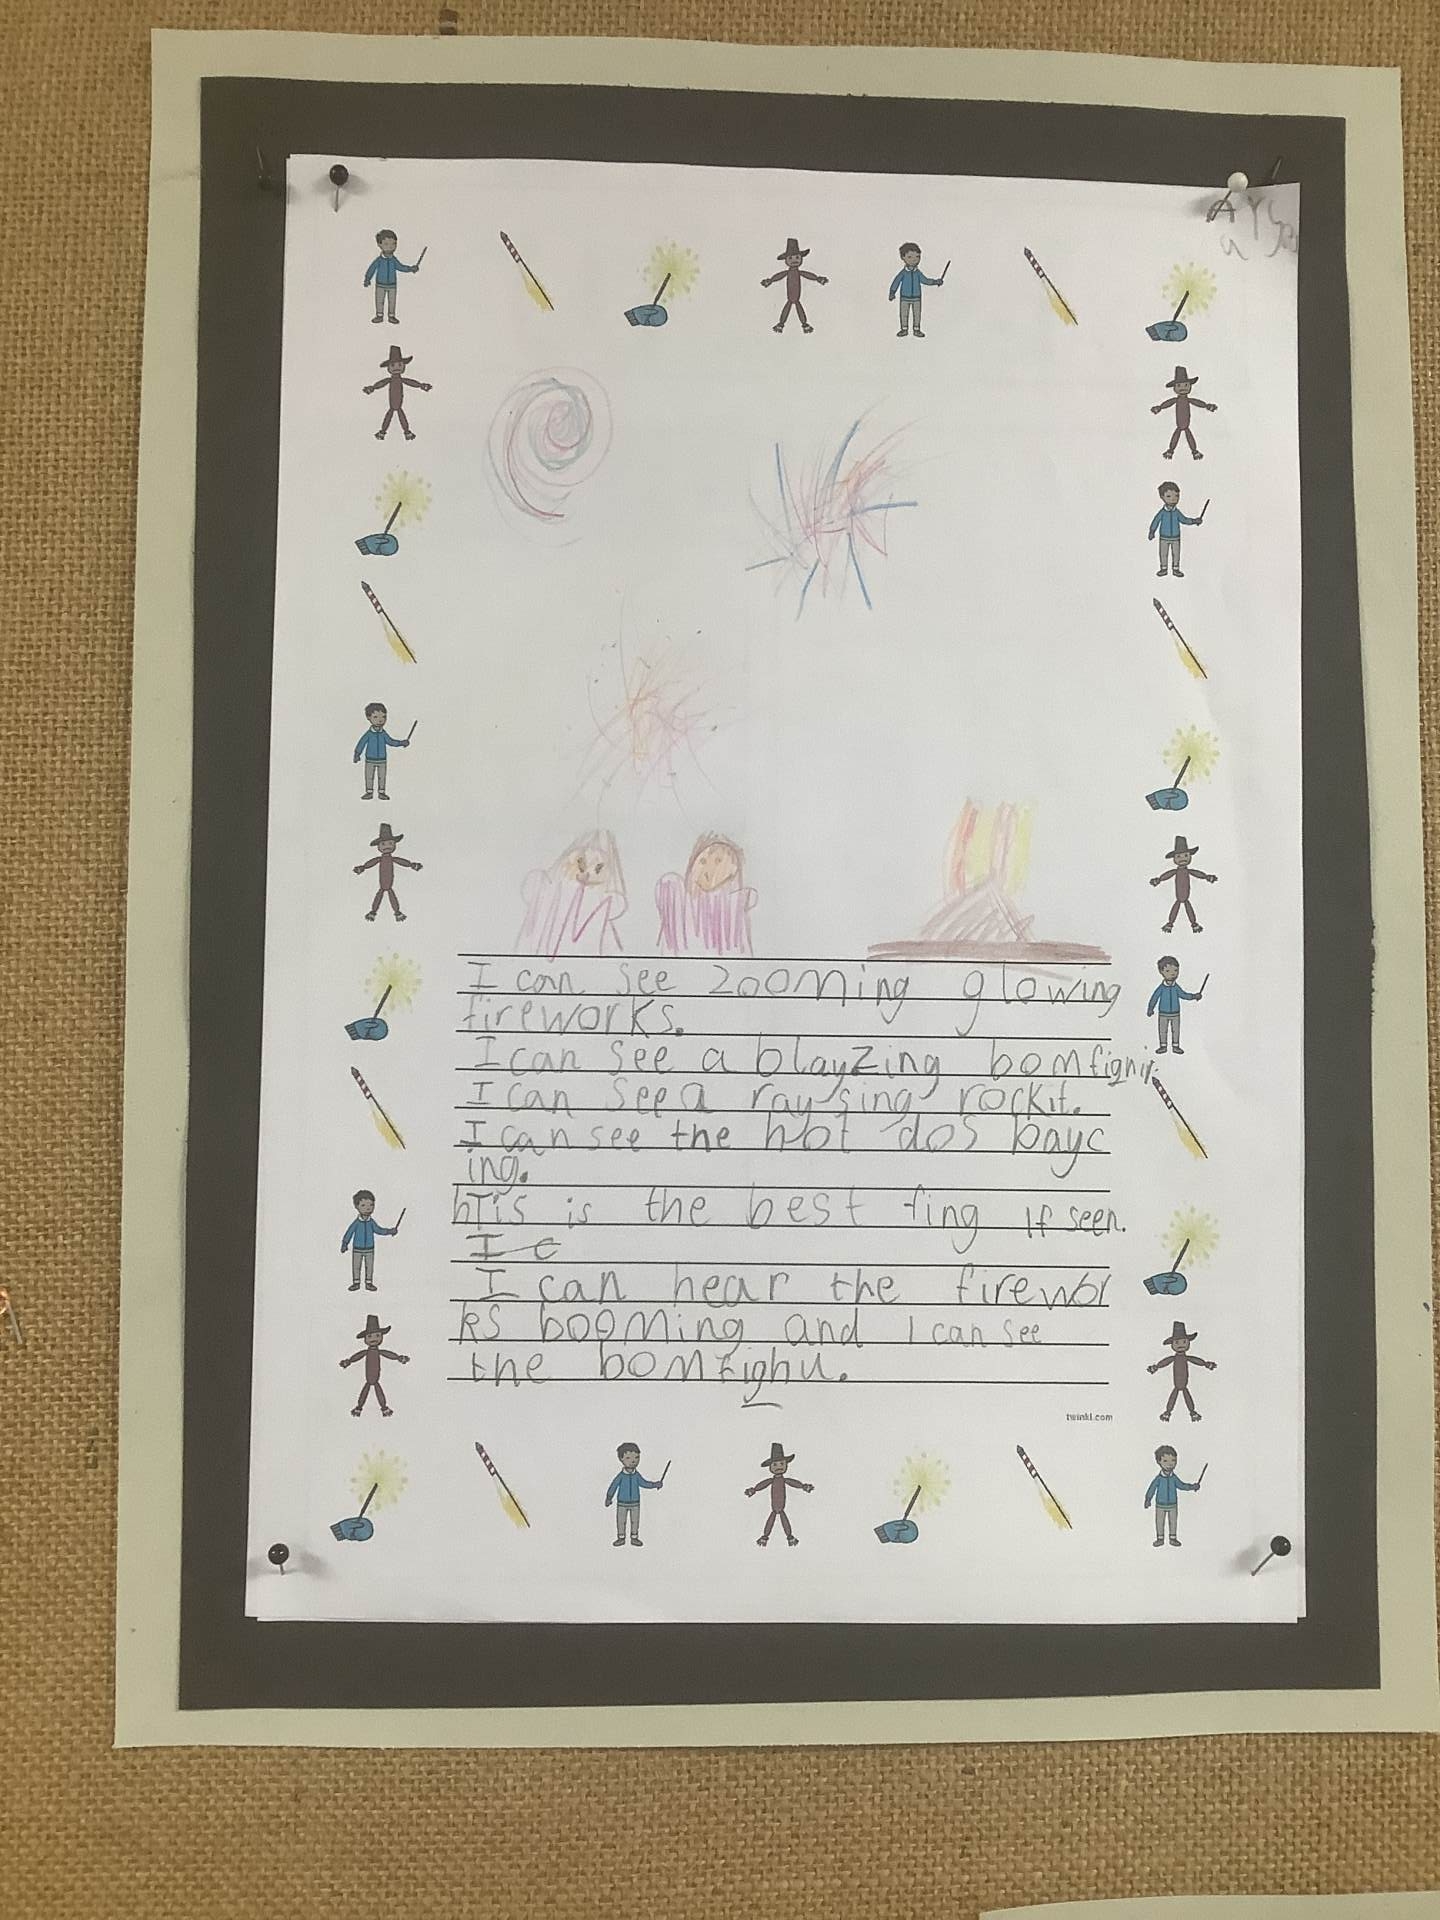 I can see zooming glowing
fireworks.
I can see a blayzing bomfignir.
I can see a raysing rockit.
I can see the hot dos bayc
ing.
htis is the best fing If seen.
I c
I can hear the firewor
ks booming and I can see
the bomfighu.
twinkl.com